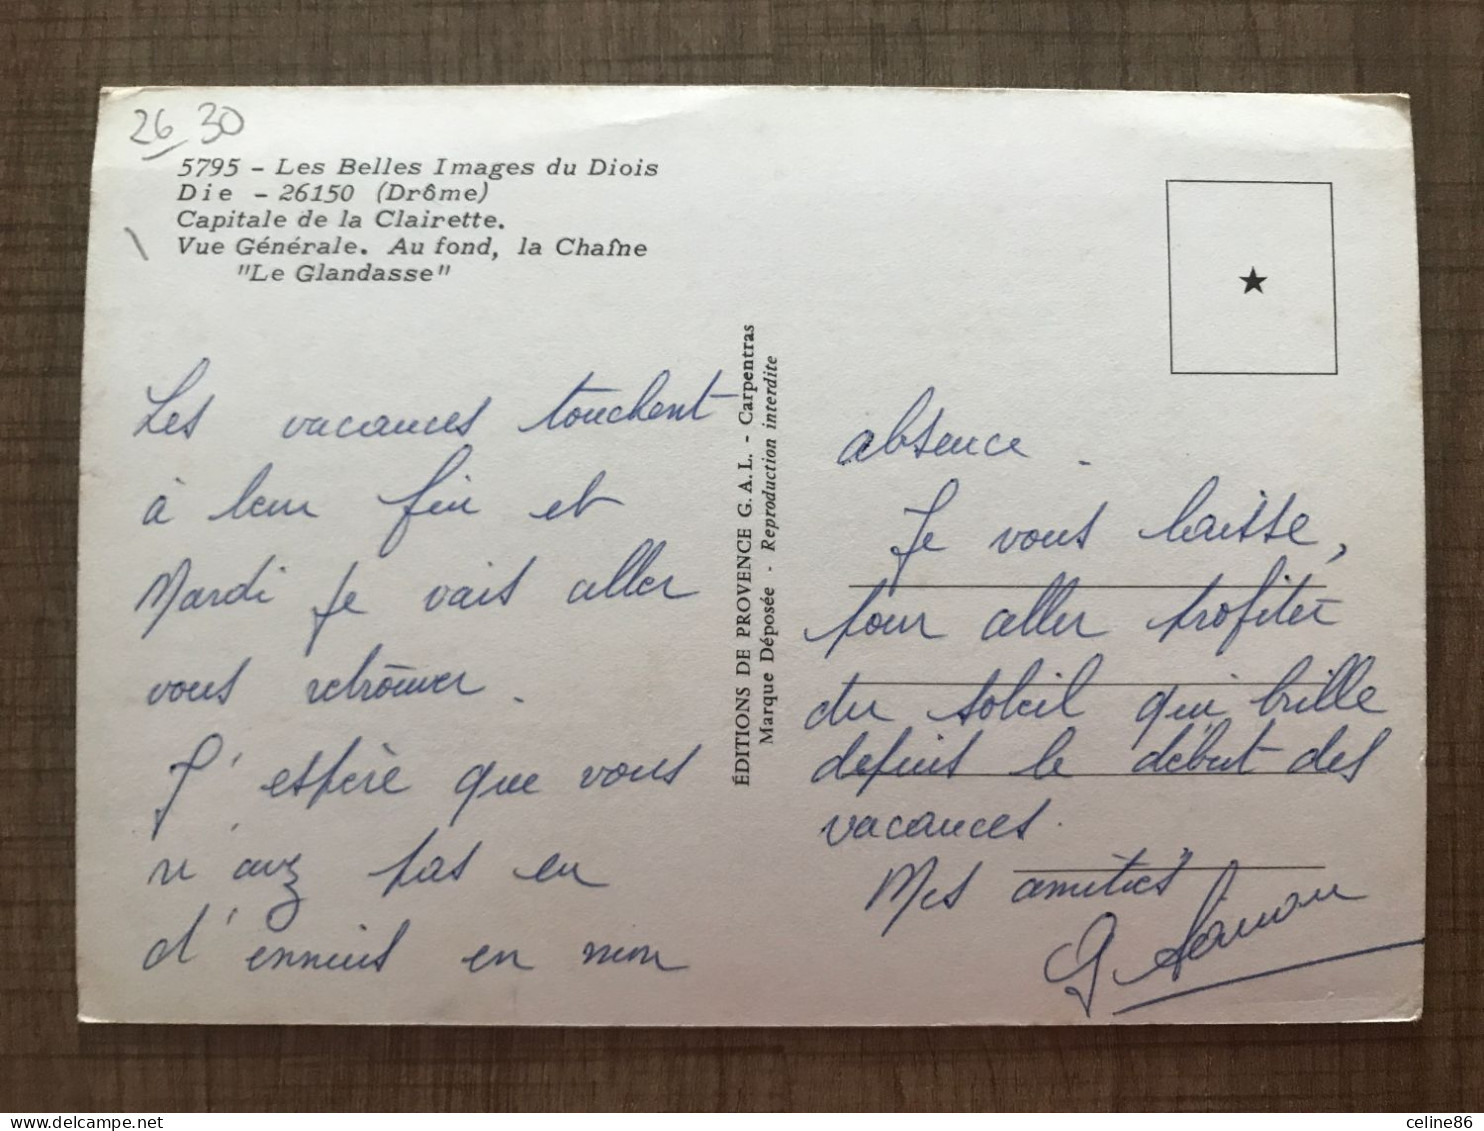 26 30
5795 - Les Belles Images du Diois
Die - 26150 (Drôme)
Capitale de la Clairette.
Vue Générale. Au fond, la Chaîne
"Le Glandasse"
Les vacances touchent
à leur fin et
Mardi je vais aller
vous retrouver.
J'espère que vous
n'avez pas eu
d'ennuis en mon
ÉDITIONS DE PROVENCE G.A.L. - Carpentras
Marque Déposée - Reproduction interdite
absence.
Je vous laisse,
pour aller profiter
du soleil qui brille
depuis le début des
vacances.
Mes amitiés
G.
delcampe.net
celine86